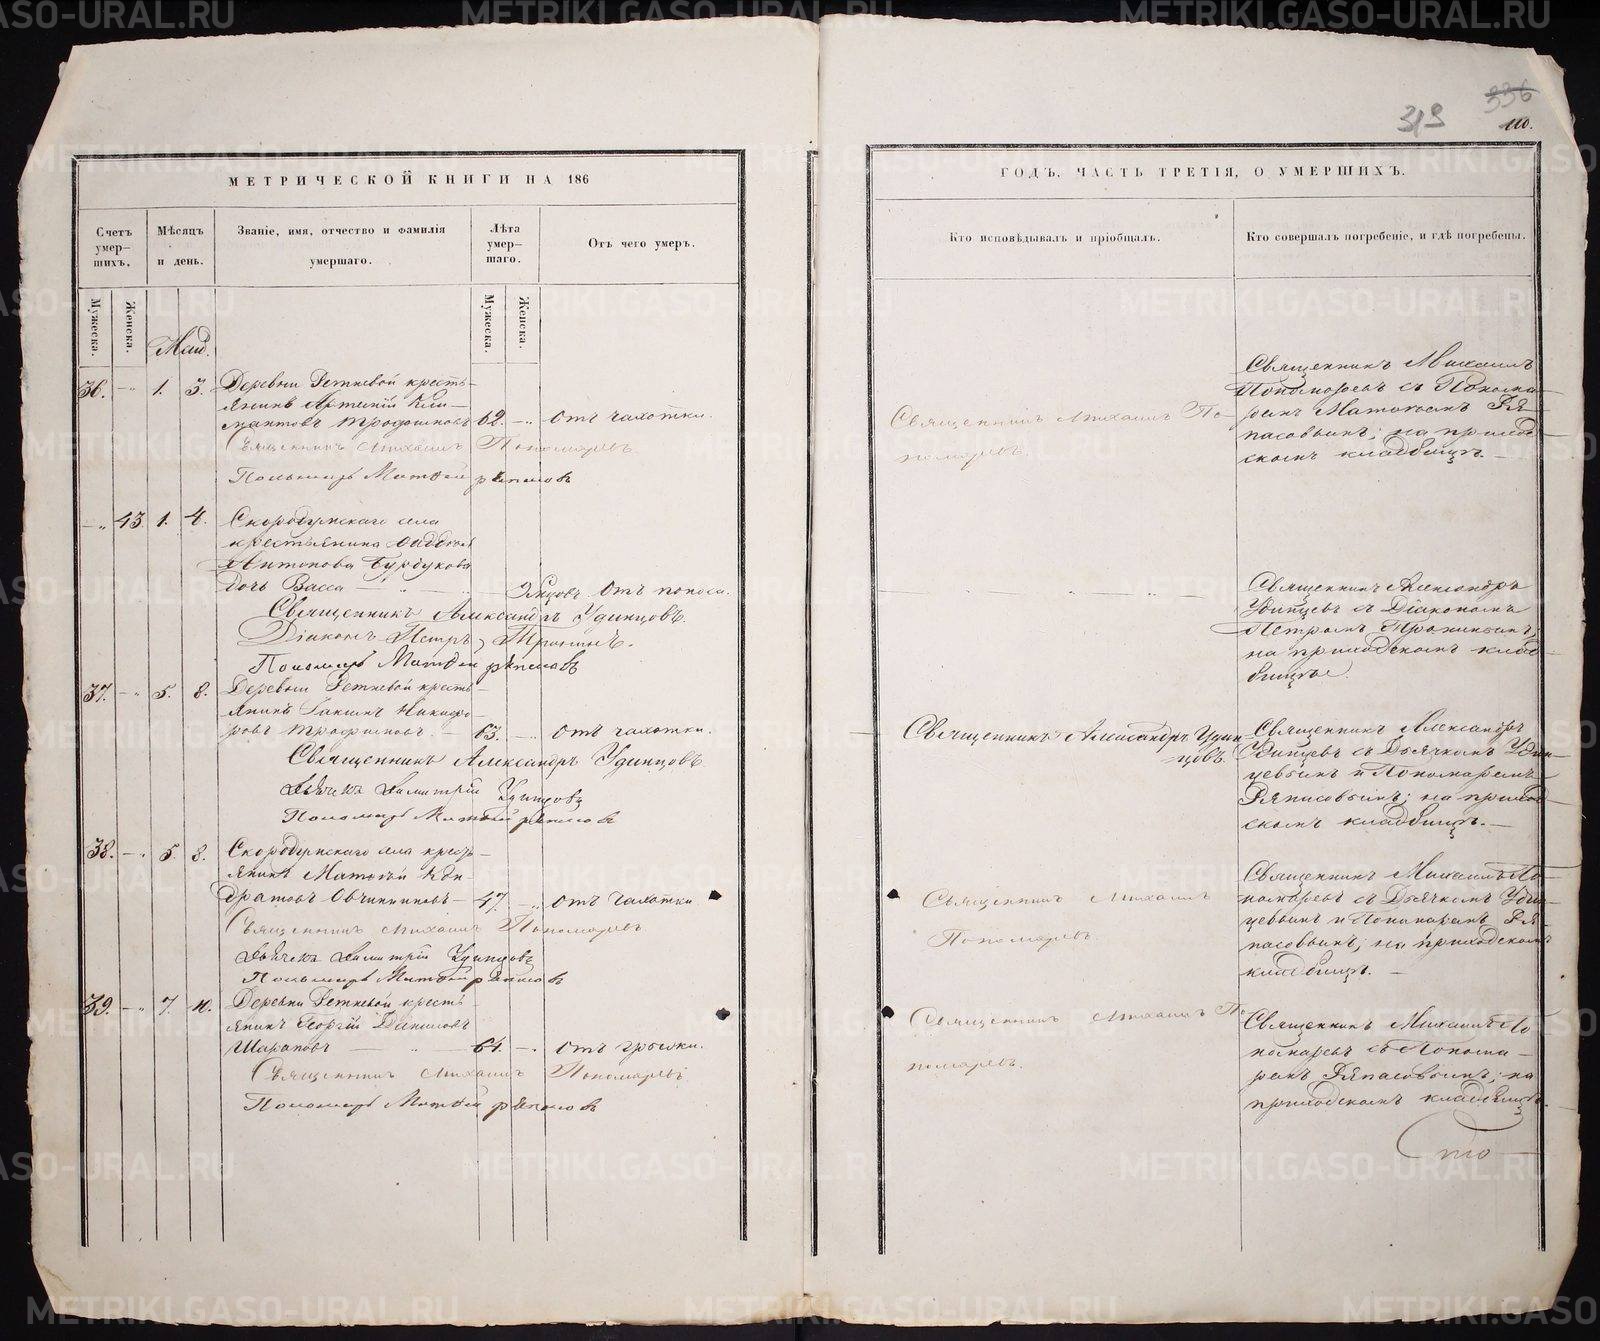 336
319
110.
МЕТРИЧЕСКОЙ КНИГИ НА 186
ГОДЪ, ЧАСТЬ ТРЕТІЯ, О УМЕРШИХЪ.
Счетъ умер-шихъ.
Мѣсяцъ и день.
Званіе, имя, отчество и фамилія умершаго.
Лѣта умер-шаго.
Отъ чего умеръ.
Кто исповѣдывалъ и пріобщалъ.
Кто совершалъ погребеніе, и гдѣ погребены.
Мужеска.
Женска.
Мужеска.
Женска.
Май.
36. — „ 1. 3. Деревни Ретневой кресть-
янинъ
мантовъ Трофимовъ 62. — „ отъ чахотки.
Священникъ Михаилъ Пономаревъ
Пономарь Матвѣй Ряпасовъ
Священникъ Михаилъ По-
номаревъ.
Священникъ Михаилъ
Пономаревъ съ Понома-
ремъ Матвѣемъ Ря-
пасовымъ; на приход-
скомъ кладбищѣ. —
— „ 43. 1. 4. Скородумскаго села
крестьянина
Антонова Бурдукова
дочь Васса — „ — отъ поноса.
Священникъ Александръ Удинцовъ.
Діаконъ Петръ Тронинъ.
Пономарь Матвѣй Ряпасовъ
Священникъ Александръ
Удинцевъ съ Діакономъ
Петромъ Тронинымъ;
на приходскомъ клад-
бищѣ.
37. — „ 5. 8. Деревни Ретневой кресть-
янинъ Никифо-
ровъ Трофимовъ. — 63. — „ отъ чахотки.
Священникъ Александръ Удинцовъ
Дьячекъ Димитрій Удинцовъ
Пономарь Матвѣй Ряпасовъ
Священникъ Александръ Удин-
цовъ.
Священникъ Александръ
Удинцевъ съ Дьячкомъ Удин-
цевымъ и Пономаремъ
Ряпасовымъ; на приход-
скомъ кладбищѣ. —
38. — „ 5. 8. Скородумскаго села кресть-
янинъ Матвѣй Кон-
дратовъ Овчинниковъ — 47. — „ отъ чахотки
Священникъ Михаилъ Пономаревъ
Дьячекъ Димитрій Удинцовъ
Пономарь Матвѣй Ряпасовъ
Священникъ Михаилъ
Пономаревъ.
Священникъ Михаилъ По-
номаревъ съ Дьячкомъ Удин-
цевымъ и Пономаремъ Ря-
пасовымъ; на приходскомъ
кладбищѣ. —
39. — „ 7. 10. Деревни Ретневой кресть-
янинъ Георгій Даниловъ
Шараповъ — „ — 64. — „ отъ грыжи.
Священникъ Михаилъ Пономаревъ
Пономарь Матвѣй Ряпасовъ
Священникъ Михаилъ По-
номаревъ.
Священникъ Михаилъ По-
номаревъ съ Понома-
ремъ Ряпасовымъ; на
приходскомъ кладбищѣ.
METRIKI.GASO-URAL.RU